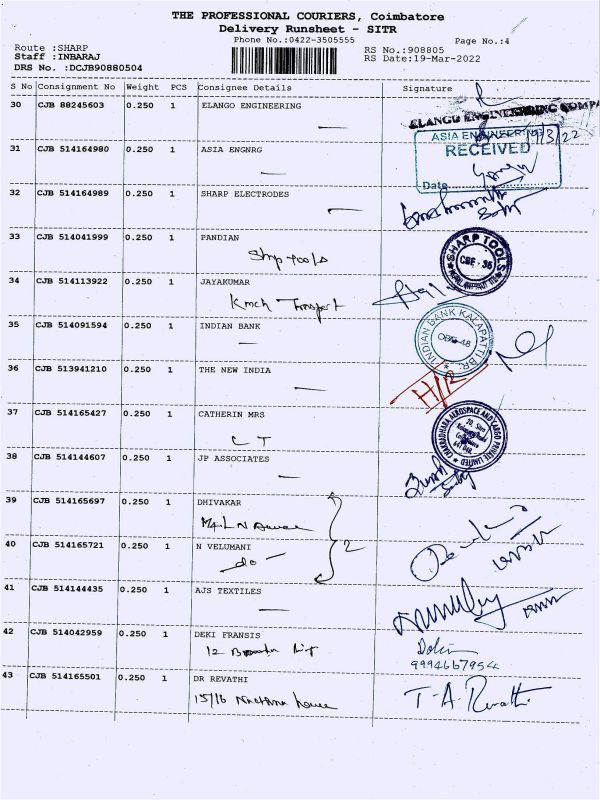 THE PROFESSIONAL COURIERS, Coimbatore
Delivery Runsheet - SITR
Phone No.:0422-3505555 Page No.:4
Route :SHARP RS No.:908805
Staff :INBARAJ RS Date:19-Mar-2022
DRS No. :DCJB90880504
S No Consignment No Weight PCS Consignee Details Signature
30 CJB 88245603 0.250 1 ELANGO ENGINEERING
ELANGO ENGINEERING COMPA
31 CJB 514164980 0.250 1 ASIA ENGNRG
ASIA ENGINEERING
RECEIVED
Date
32 CJB 514164989 0.250 1 SHARP ELECTRODES
33 CJB 514041999 0.250 1 PANDIAN
Shrp tools
SHARP TOOLS
CBE - 35
34 CJB 514113922 0.250 1 JAYAKUMAR
Kmch Transport
35 CJB 514091594 0.250 1 INDIAN BANK
INDIAN BANK KALAPATTI BR.
36 CJB 513941210 0.250 1 THE NEW INDIA
37 CJB 514165427 0.250 1 CATHERIN MRS
C T
CHAKRADHARA AEROSPACE AND CARGO PRIVATE LIMITED
38 CJB 514144607 0.250 1 JP ASSOCIATES
39 CJB 514165697 0.250 1 DHIVAKAR
40 CJB 514165721 0.250 1 N VELUMANI
do
2
41 CJB 514144435 0.250 1 AJS TEXTILES
42 CJB 514042959 0.250 1 DEKI FRANSIS
12
9994667954
43 CJB 514165501 0.250 1 DR REVATHI
15/16 house
T. A. Revathi